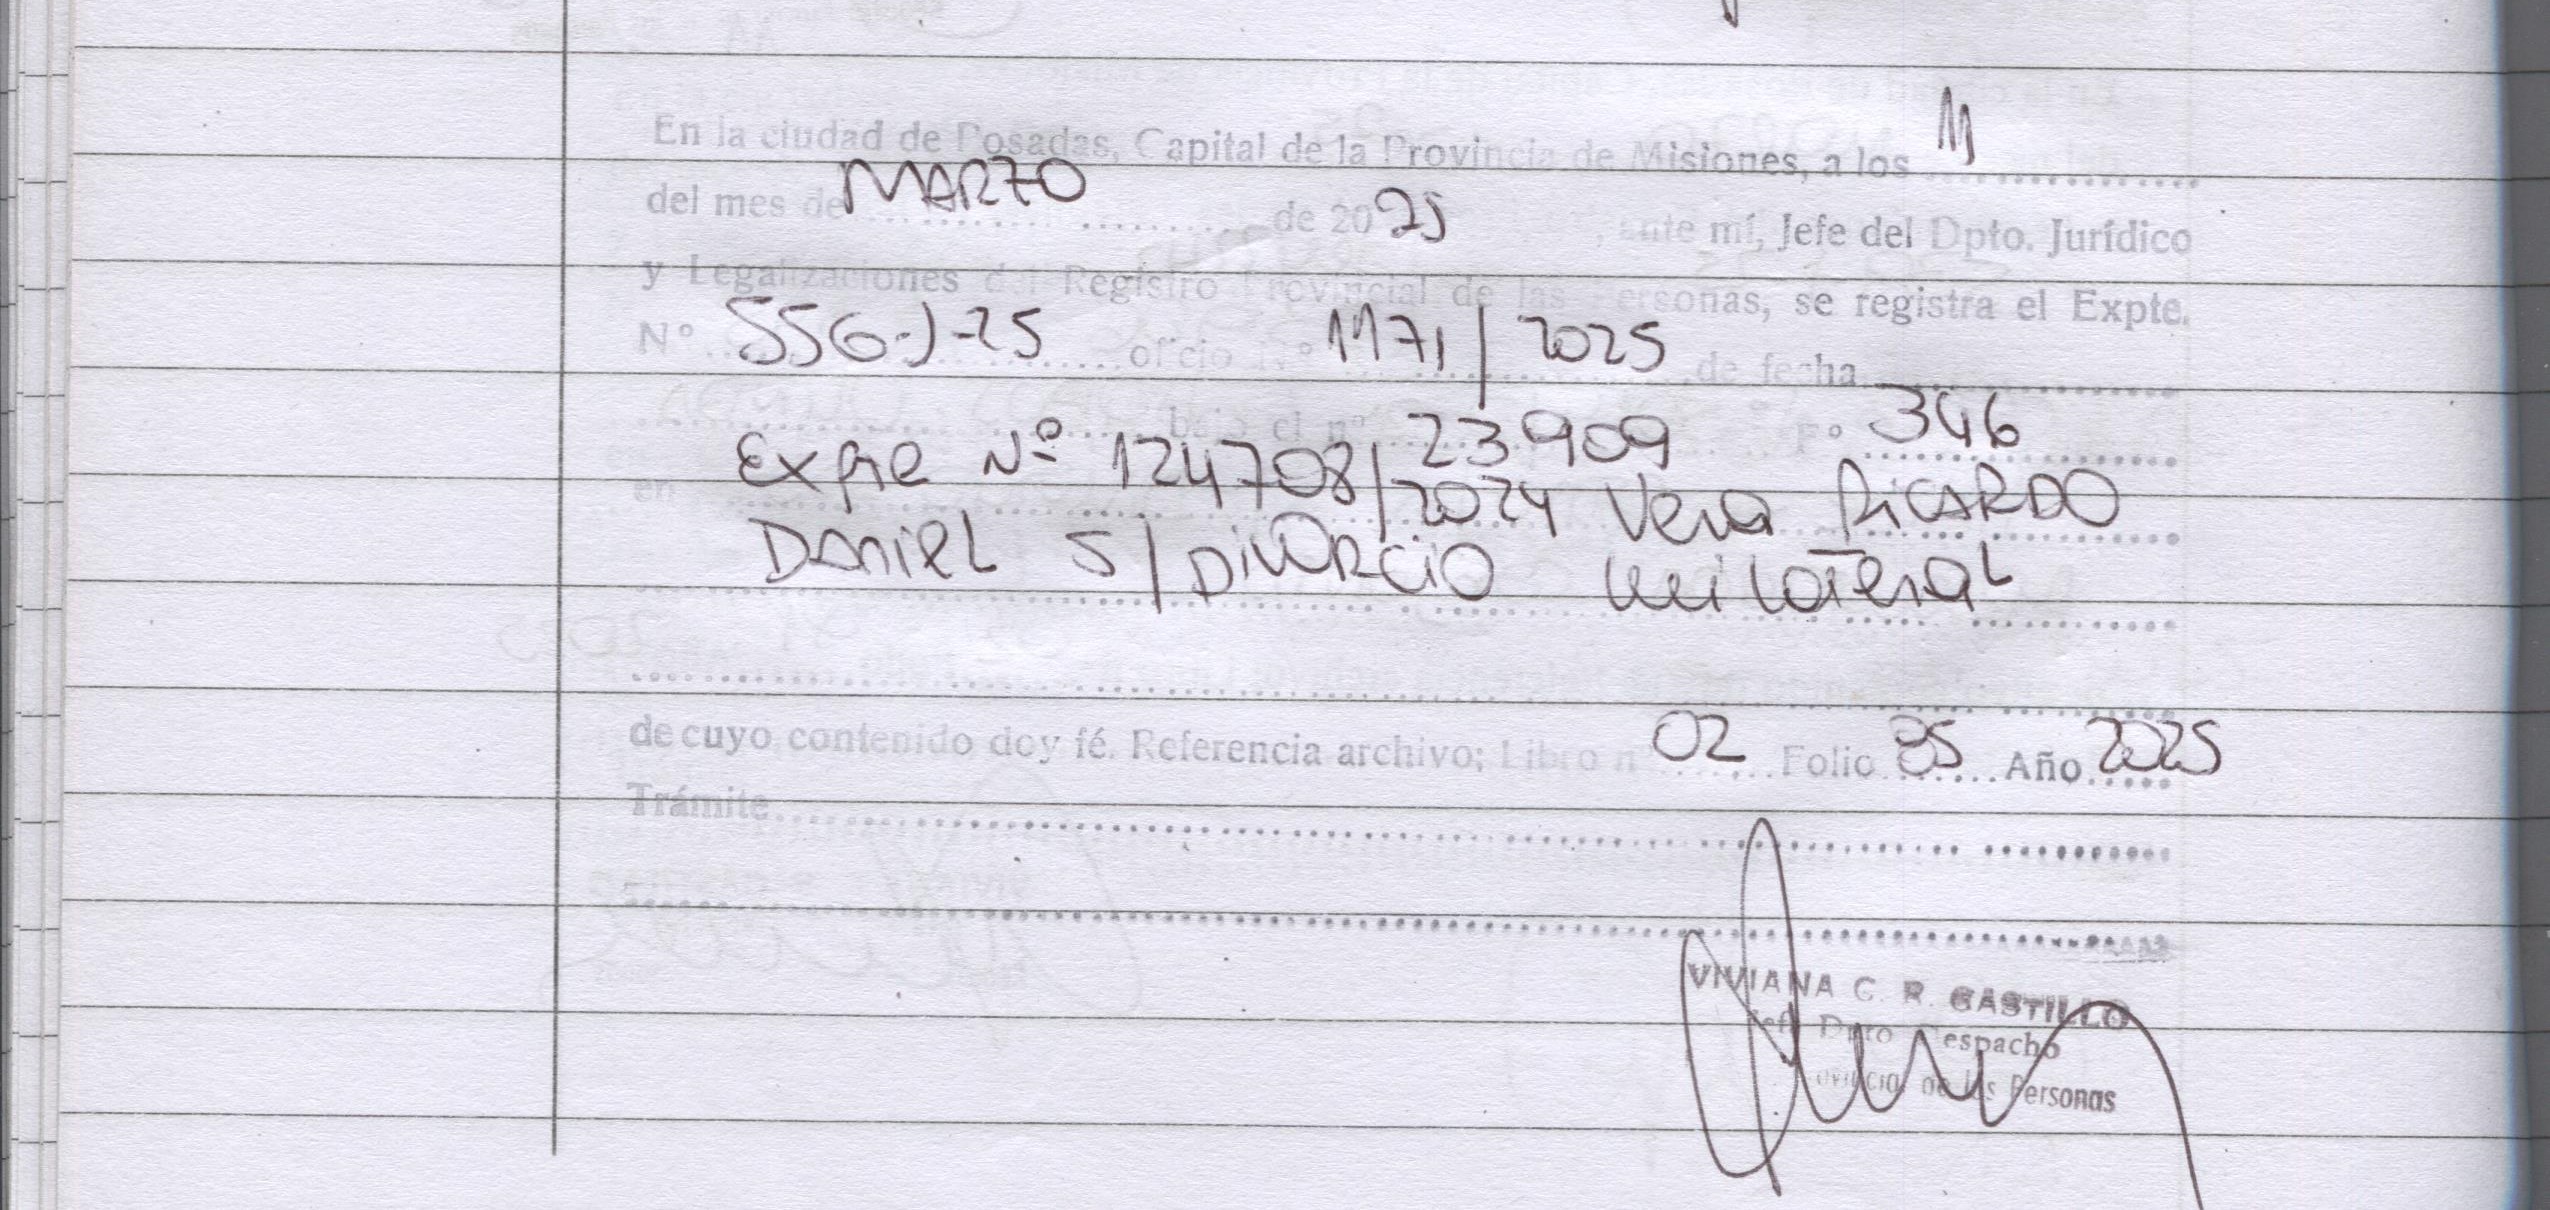 En la ciudad de Posadas, Capital de la Provincia de Misiones, a los 11
del mes de MARZO de 2025, ante mí, Jefe del Dpto. Jurídico
y Legalizaciones del Registro Provincial de las Personas, se registra el Expte.
Nº 556-J-25 oficio Nº 1171/2025 de fecha
bajo el nº 23909 Fº 346
en Expte Nº 124708/2024 Vera RICARDO
DANIEL S/DIVORCIO unilateral
de cuyo contenido doy fé. Referencia archivo; Libro nº 02 Folio 85 Año 2025
Trámite
VIVIANA C. R. CASTILLO
Jefe Dpto Despacho
Provincial de las Personas